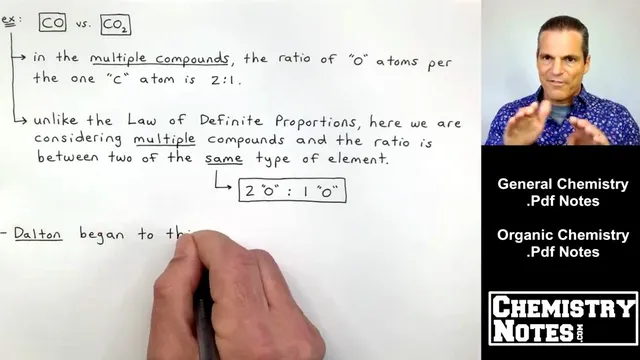 ex: CO vs. CO₂
in the multiple compounds, the ratio of "O" atoms per
the one "C" atom is 2:1.
unlike the Law of Definite Proportions, here we are
considering multiple compounds and the ratio is
between two of the same type of element.
2 "O" : 1 "O"
- Dalton began to thi
General Chemistry
.Pdf Notes
Organic Chemistry
.Pdf Notes
CHEMISTRY
NOTES.COM